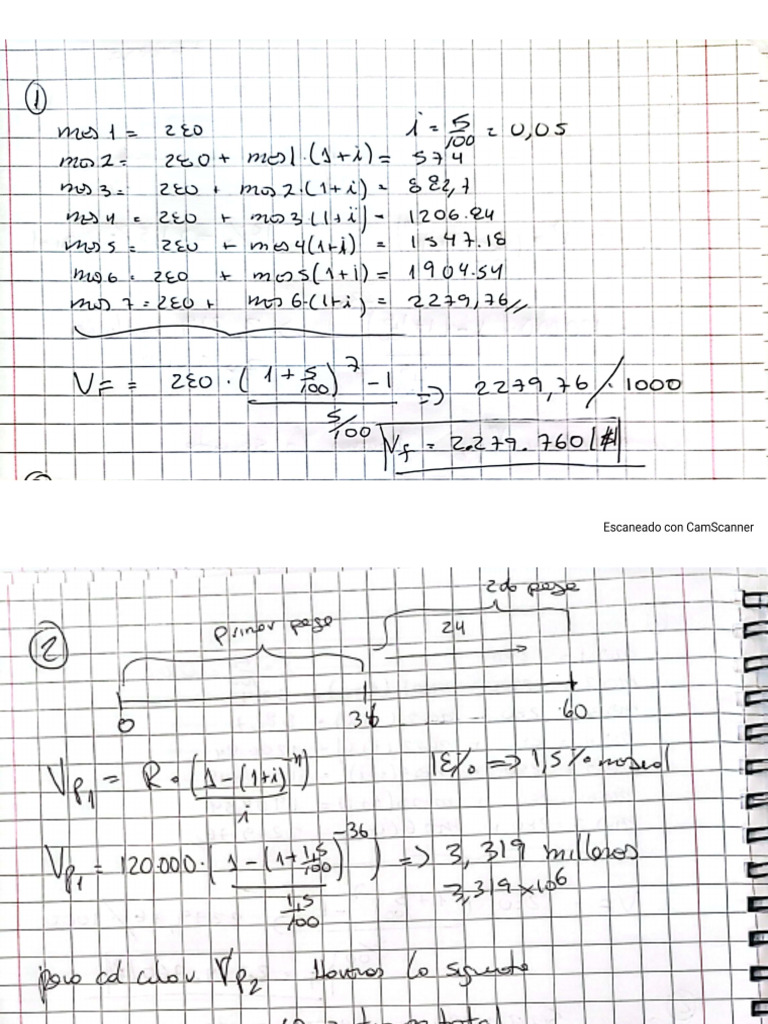 1
mes 1 = 280 i = 5/100 = 0,05
mes 2 = 280 + mes 1 · (1+i) = 574
mes 3 = 280 + mes 2 · (1+i) = 882,7
mes 4 = 280 + mes 3 (1+i) = 1206.84
mes 5 = 280 + mes 4 (1+i) = 1547.18
mes 6 = 280 + mes 5 (1+i) = 1904.54
mes 7 = 280 + mes 6 · (1+i) = 2279,76 //
VF = 280 · ((1 + 5/100)^7 - 1) / (5/100) => 2279,76 / · 1000
Vf = 2.279.760 ($)
Escaneado con CamScanner
2do pago
primer pago 24
2
0 36 60
Vp1 = R · (1 - (1+i)^-n) / i 18% => 1,5% mensual
Vp1 = 120.000 · (1 - (1 + 1,5/100)^-36) / (1,5/100) => 3,319 millones
3,319 x 10^6
para calcular Vp2 Haremos lo siguiente
total